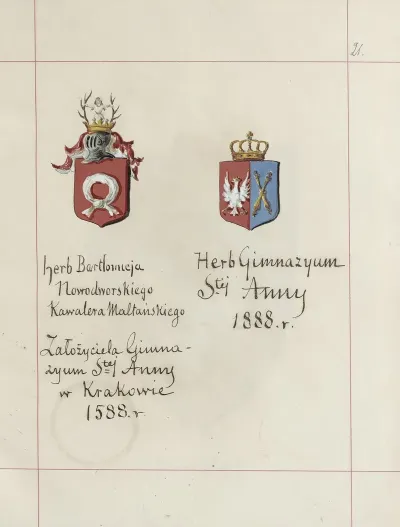 21.
herb Bartłomieja
Nowodworskiego
Kawalera Maltańskiego
Założyciela Gimna-
zyum Stej Anny
w Krakowie
1588. r.
Herb Gimnazyum
Stej Anny
1888. r.